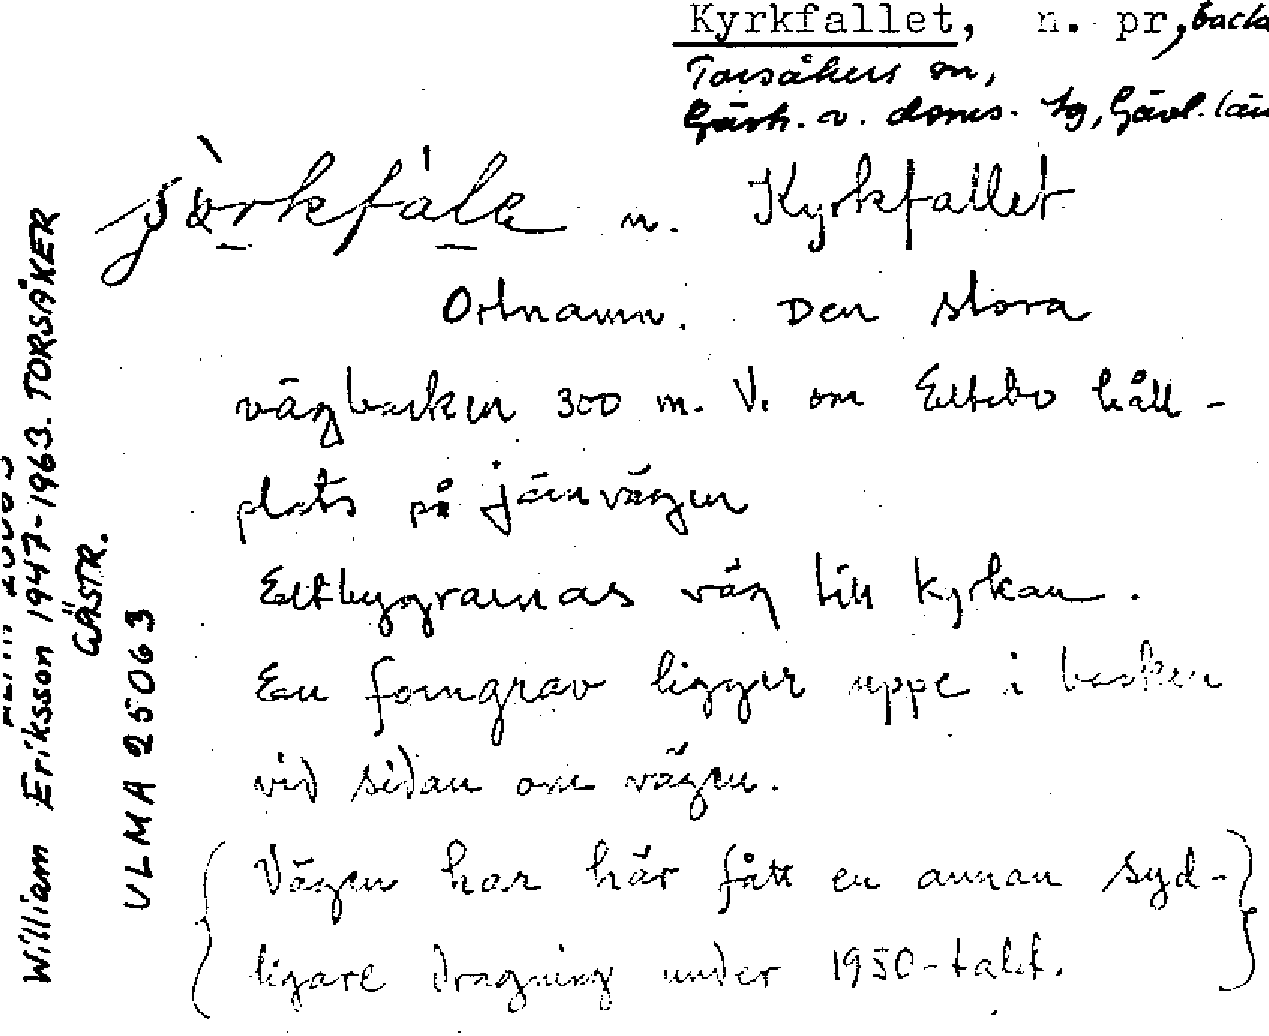 Kyrkfallet, n. pr, backe
Torsåkers sn,
Gästr. v. doms. tg, Gävl. län
n. Kyrkfallet
Ortnamn. Den stora
vägbacken 300 m. V. om Eltebo håll-
plats på järnvägen
Eltbygrannas väg till kyrkan.
En forngrav ligger uppe i backen
vid sidan om vägen.
{Vägen har här fått en annan syd-}
{ligare dragning under 1950-talet.}
William Eriksson 1947-1963. TORSÅKER
GÄSTR.
ULMA 25063